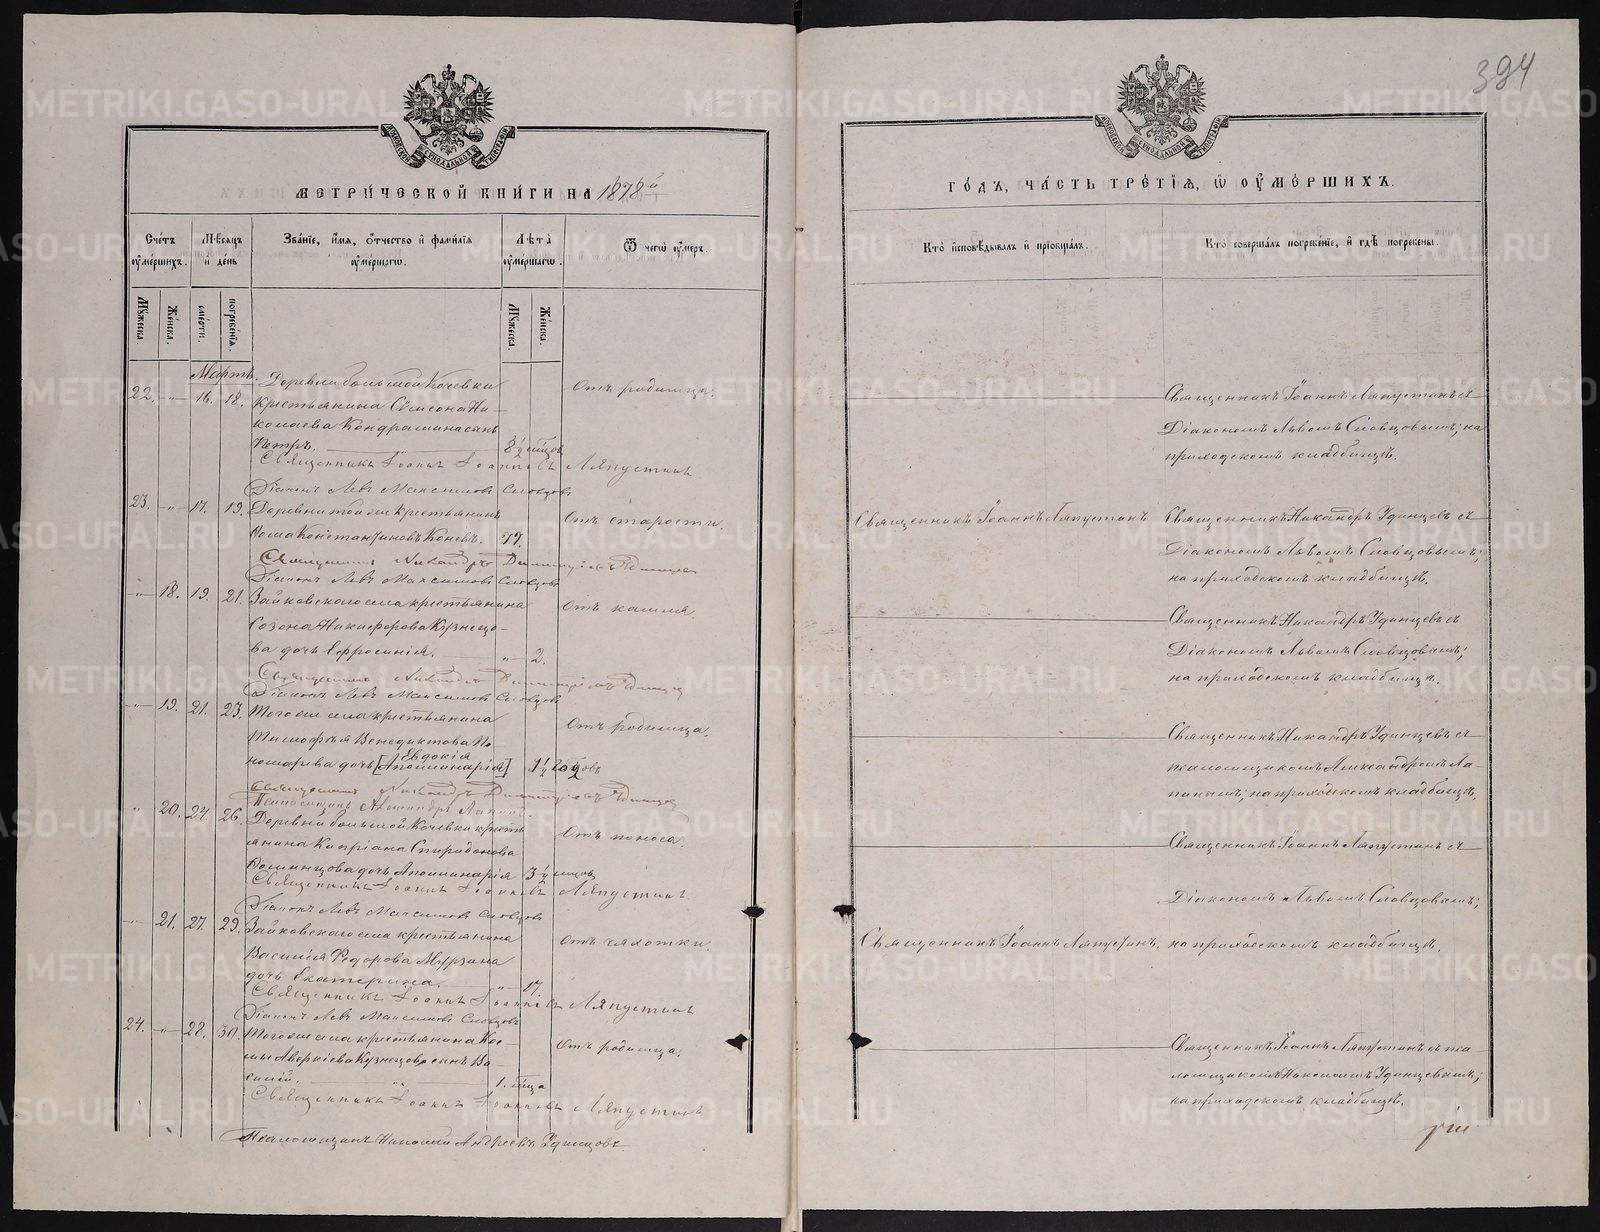 394
МЕТРИЧЕСКОЙ КНИГИ НА 1878 й
Счетъ оумершихъ.
Мѣсяцъ и день
Званіе, имя, отчество и фамилія оумершагѡ.
Лѣта оумершагѡ.
Ѿ чегѡ оумеръ.
Мꙋжеска.
Женска.
смерти.
погребенія.
Мꙋжеска.
Женска.
Мартъ.
22. -"- 16. 18. Деревни большой Кочевки
крестьянина Симеона Ни-
колаева Кондрашина сынъ
Петръ. 8½ мѣцовъ
Отъ родимца.
Священникъ Іоаннъ Іоанновъ Ляпустинъ
Діаконъ Левъ Максимовъ Словцовъ
23. -"- 17. 19. Деревни той же крестьянинъ
Фома Константиновъ Коневъ. 77.
Отъ старости.
Священникъ Никандръ Удинцевъ
Діаконъ Левъ Максимовъ Словцовъ
-"- 18. 19. 21. Зайковскаго села крестьянина
Созона Никифорова Кузнецо-
ва дочь Ефросинія. -"- 2.
Отъ кашля
Священникъ Никандръ Удинцевъ
Діаконъ Левъ Максимовъ Словцовъ
-"- 19. 21. 23. Того же села крестьянина
Тимофея Венедиктова По-
номарева дочь [Аполлинарія] Евдокія 1½ годовъ
Отъ родимца.
Священникъ Никандръ Удинцевъ
Псаломщикъ Александръ Лапинъ
" 20. 24. 26. Деревни большой Кочевки кресть-
янина Капріана Спиридонова
дочь Аполлинарія 3½ мѣцовъ
Отъ поноса.
Священникъ Іоаннъ Іоанновъ Ляпустинъ
Діаконъ Левъ Максимовъ Словцовъ
-"- 21. 27. 29. Зайковскаго села крестьянина
Василія Федорова Мурзина
дочь Екатерина. -"- 17.
Отъ чахотки.
Священникъ Іоаннъ Іоанновъ Ляпустинъ
Діаконъ Левъ Максимовъ Словцовъ
24. -"- 28. 30. Того же села крестьянина Кос-
мы Аверкіева Кузнецова сынъ Ва-
силій. 1. мѣца
Отъ родимца.
Священникъ Іоаннъ Іоанновъ Ляпустинъ
Псаломщикъ Николай Андреевъ Удинцовъ
ГОДЪ, ЧАСТЬ ТРЕТІЯ, Ѡ ОУМЕРШИХЪ.
Кто исповѣдывалъ и пріобщалъ.
Кто совершалъ погребеніе, и гдѣ погребены.
Священникъ Іоаннъ Ляпустинъ съ
Діакономъ Львомъ Словцовымъ; на
приходскомъ кладбищѣ.
Священникъ Іоаннъ Ляпустинъ
Священникъ Никандръ Удинцевъ съ
Діакономъ Львомъ Словцовымъ;
на приходскомъ кладбищѣ.
Священникъ Никандръ Удинцевъ съ
Діакономъ Львомъ Словцовымъ;
на приходскомъ кладбищѣ.
Священникъ Никандръ Удинцевъ съ
псаломщикомъ Александромъ Ла-
пинымъ; на приходскомъ кладбищѣ.
Священникъ Іоаннъ Ляпустинъ съ
Діакономъ Львомъ Словцовымъ;
Священникъ Іоаннъ Ляпустинъ.
на приходскомъ кладбищѣ.
Священникъ Іоаннъ Ляпустинъ съ пса-
ломщикомъ Николаемъ Удинцевымъ;
на приходскомъ кладбищѣ.
METRIKI.GASO-URAL.RU